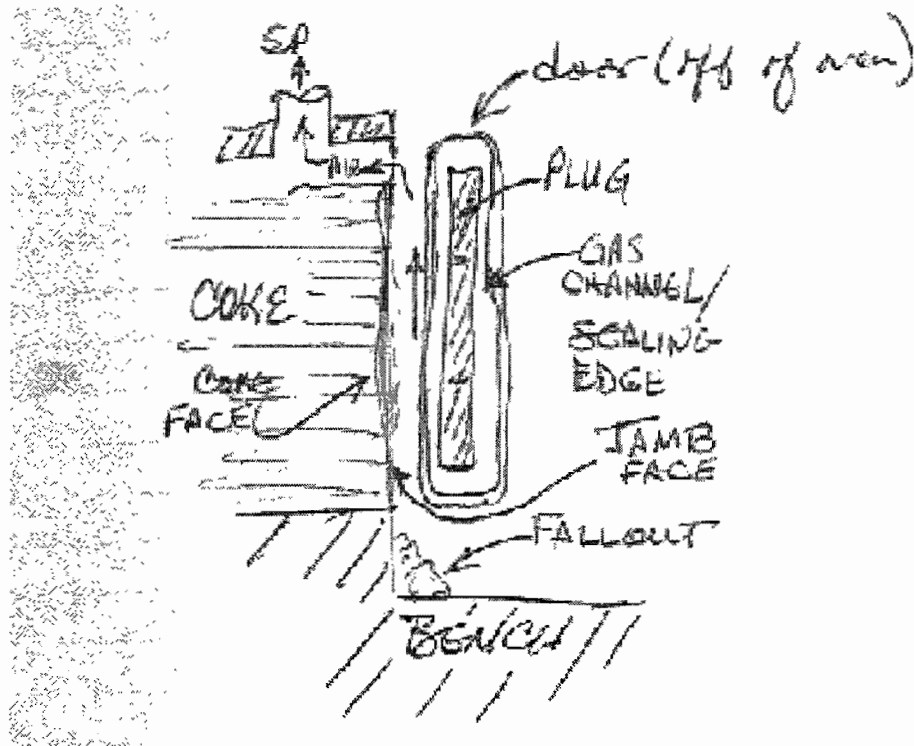 SP
door (off of oven)
AIR
PLUG
GAS
CHANNEL/
SEALING
EDGE
COKE
COKE
FACE
JAMB
FACE
FALLOUT
BENCH